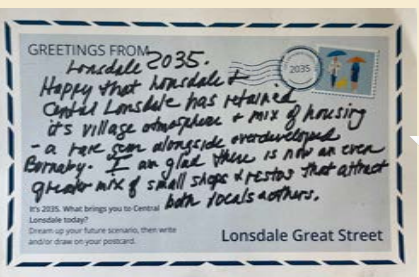 GREETINGS FROM
Lonsdale 2035.
2035
Happy that Lonsdale &
Central Lonsdale has retained
it's village atmosphere & mix of housing
- a rare gem alongside overdeveloped
Burnaby. I am glad there is now an even
greater mix of small shops & restos that attract
both locals & others.
It's 2035. What brings you to Central
Lonsdale today?
Dream up your future scenario, then write
and/or draw on your postcard.
Lonsdale Great Street